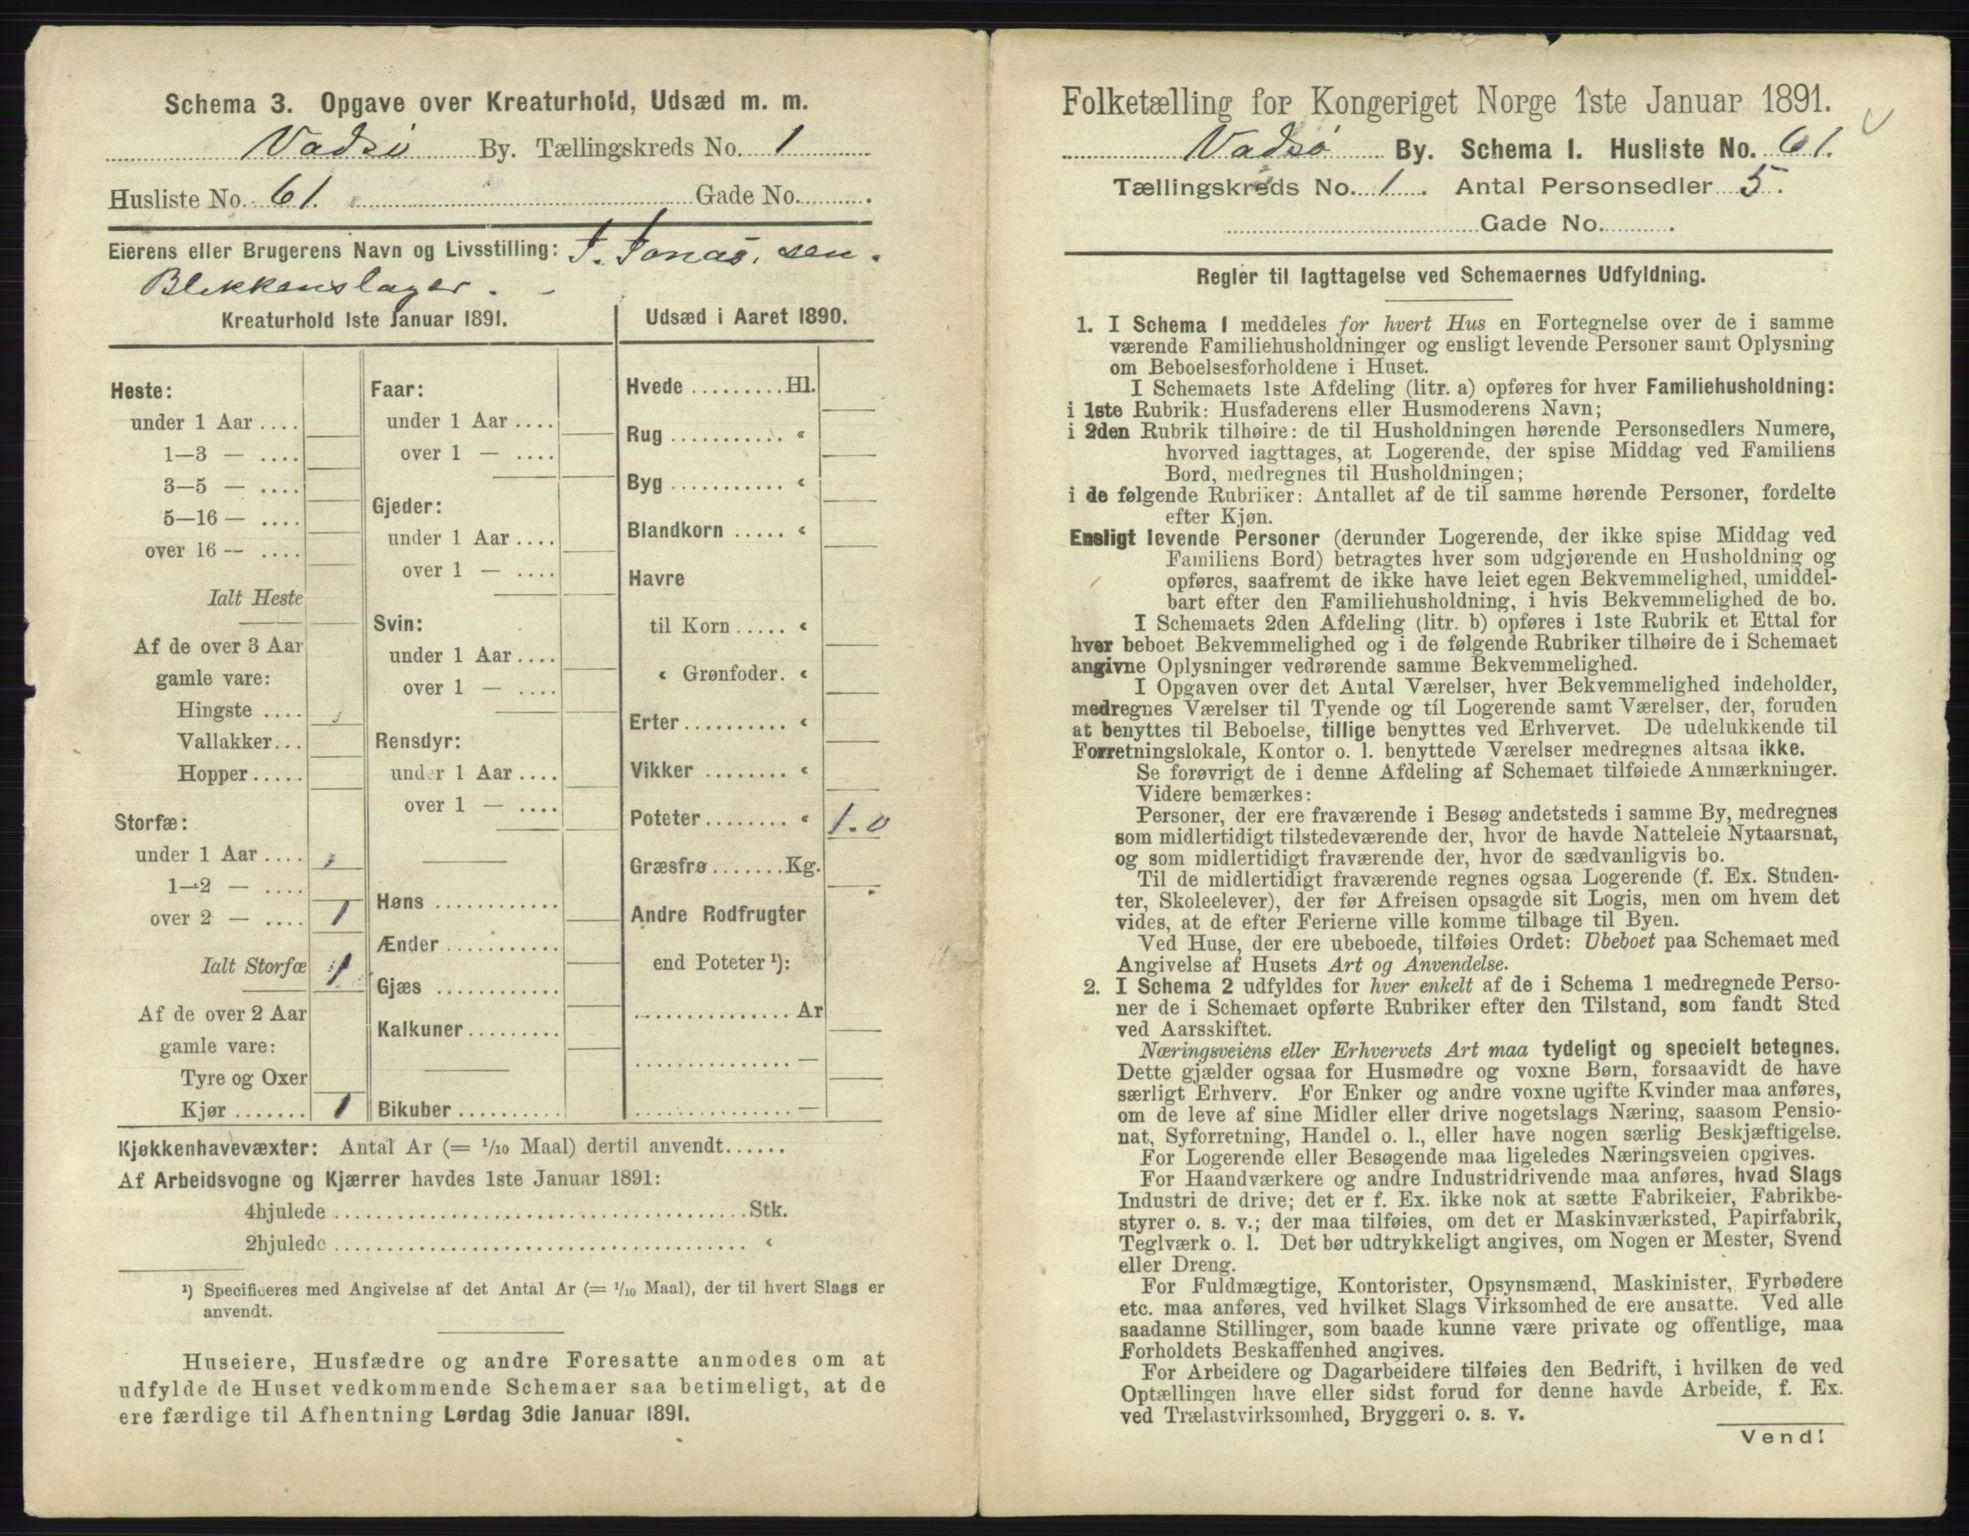 Schema 3. Opgave over Kreaturhold, Udsæd m. m.
Vadsö By. Tællingskreds No. 1
Husliste No. 61. Gade No. .
Eierens eller Brugerens Navn og Livsstilling: J. Jonas.sen.
Blekkenslager. -
Kreaturhold 1ste Januar 1891.
Heste:
under 1 Aar ....
1—3 — ....
3—5 — ....
5—16 — ....
over 16 — ....
Ialt Heste
Af de over 3 Aar
gamle vare:
Hingste ....
Vallakker...
Hopper.....
Storfæ:
under 1 Aar ....
1—2 — ....
over 2 — .... 1
Ialt Storfæ 1
Af de over 2 Aar
gamle vare:
Tyre og Oxer
Kjør ....... 1
Faar:
under 1 Aar ....
over 1 — ....
Gjeder:
under 1 Aar ....
over 1 — ....
Svin:
under 1 Aar....
over 1 — ....
Rensdyr:
under 1 Aar ....
over 1 — ....
Høns ............
Ænder ...........
Gjæs ............
Kalkuner.........
Bikuber..........
Udsæd i Aaret 1890.
Hvede .........Hl.
Rug ........... «
Byg ........... «
Blandkorn ..... «
Havre
til Korn ..... «
« Grønfoder. «
Erter.......... «
Vikker ........ «
Poteter........ « 1.0
Græsfrø.......Kg.
Andre Rodfrugter
end Poteter ¹):
............... Ar
............... —
............... —
Kjøkkenhavevæxter: Antal Ar (= 1/10 Maal) dertil anvendt......
Af Arbeidsvogne og Kjærrer havdes 1ste Januar 1891:
4hjulede ........................................Stk.
2hjulede ........................................ «
¹) Specificeres med Angivelse af det Antal Ar (= 1/10 Maal), der til hvert Slags er
anvendt.
Huseiere, Husfædre og andre Foresatte anmodes om at
udfylde de Huset vedkommende Schemaer saa betimeligt, at de
ere færdige til Afhentning Lørdag 3die Januar 1891.
Folketælling for Kongeriget Norge 1ste Januar 1891.
Vadsö By. Schema I. Husliste No. 61.
Tællingskreds No. 1. Antal Personsedler 5.
Gade No. .
Regler til Iagttagelse ved Schemaernes Udfyldning.
1. I Schema 1 meddeles for hvert Hus en Fortegnelse over de i samme
værende Familiehusholdninger og ensligt levende Personer samt Oplysning
om Beboelsesforholdene i Huset.
I Schemaets 1ste Afdeling (litr. a) opføres for hver Familiehusholdning:
i 1ste Rubrik: Husfaderens eller Husmoderens Navn;
i 2den Rubrik tilhøire: de til Husholdningen hørende Personsedlers Numere,
hvorved iagttages, at Logerende, der spise Middag ved Familiens
Bord, medregnes til Husholdningen;
i de følgende Rubriker: Antallet af de til samme hørende Personer, fordelte
efter Kjøn.
Ensligt levende Personer (derunder Logerende, der ikke spise Middag ved
Familiens Bord) betragtes hver som udgjørende en Husholdning og
opføres, saafremt de ikke have leiet egen Bekvemmelighed, umiddel-
bart efter den Familiehusholdning, i hvis Bekvemmelighed de bo.
I Schemaets 2den Afdeling (litr. b) opføres i 1ste Rubrik et Ettal for
hver beboet Bekvemmelighed og i de følgende Rubriker tilhøire de i Schemaet
angivne Oplysninger vedrørende samme Bekvemmelighed.
I Opgaven over det Antal Værelser, hver Bekvemmelighed indeholder,
medregnes Værelser til Tyende og til Logerende samt Værelser, der, foruden
at benyttes til Beboelse, tillige benyttes ved Erhvervet. De udelukkende til
Forretningslokale, Kontor o. l. benyttede Værelser medregnes altsaa ikke.
Se forøvrigt de i denne Afdeling af Schemaet tilføiede Anmærkninger.
Videre bemærkes:
Personer, der ere fraværende i Besøg andetsteds i samme By, medregnes
som midlertidigt tilstedeværende der, hvor de havde Natteleie Nytaarsnat,
og som midlertidigt fraværende der, hvor de sædvanligvis bo.
Til de midlertidigt fraværende regnes ogsaa Logerende (f. Ex. Studen-
ter, Skoleelever), der før Afreisen opsagde sit Logis, men om hvem det
vides, at de efter Ferierne ville komme tilbage til Byen.
Ved Huse, der ere ubeboede, tilføies Ordet: Ubeboet paa Schemaet med
Angivelse af Husets Art og Anvendelse.
2. I Schema 2 udfyldes for hver enkelt af de i Schema 1 medregnede Perso-
ner de i Schemaet opførte Rubriker efter den Tilstand, som fandt Sted
ved Aarsskiftet.
Næringsveiens eller Erhvervets Art maa tydeligt og specielt betegnes.
Dette gjælder ogsaa for Husmødre og voxne Børn, forsaavidt de have
særligt Erhverv. For Enker og andre voxne ugifte Kvinder maa anføres,
om de leve af sine Midler eller drive nogetslags Næring, saasom Pensio-
nat, Syforretning, Handel o. l., eller have nogen særlig Beskjæftigelse.
For Logerende eller Besøgende maa ligeledes Næringsveien opgives.
For Haandværkere og andre Industridrivende maa anføres, hvad Slags
Industri de drive; det er f. Ex. ikke nok at sætte Fabrikeier, Fabrikbe-
styrer o. s. v.; der maa tilføies, om det er Maskinværksted, Papirfabrik,
Teglværk o. l. Det bør udtrykkeligt angives, om Nogen er Mester, Svend
eller Dreng.
For Fuldmægtige, Kontorister, Opsynsmænd, Maskinister, Fyrbødere
etc. maa anføres, ved hvilket Slags Virksomhed de ere ansatte. Ved alle
saadanne Stillinger, som baade kunne være private og offentlige, maa
Forholdets Beskaffenhed angives.
For Arbeidere og Dagarbeidere tilføies den Bedrift, i hvilken de ved
Optællingen have eller sidst forud for denne havde Arbeide, f. Ex.
ved Trælastvirksomhed, Bryggeri o. s. v.
Vend!